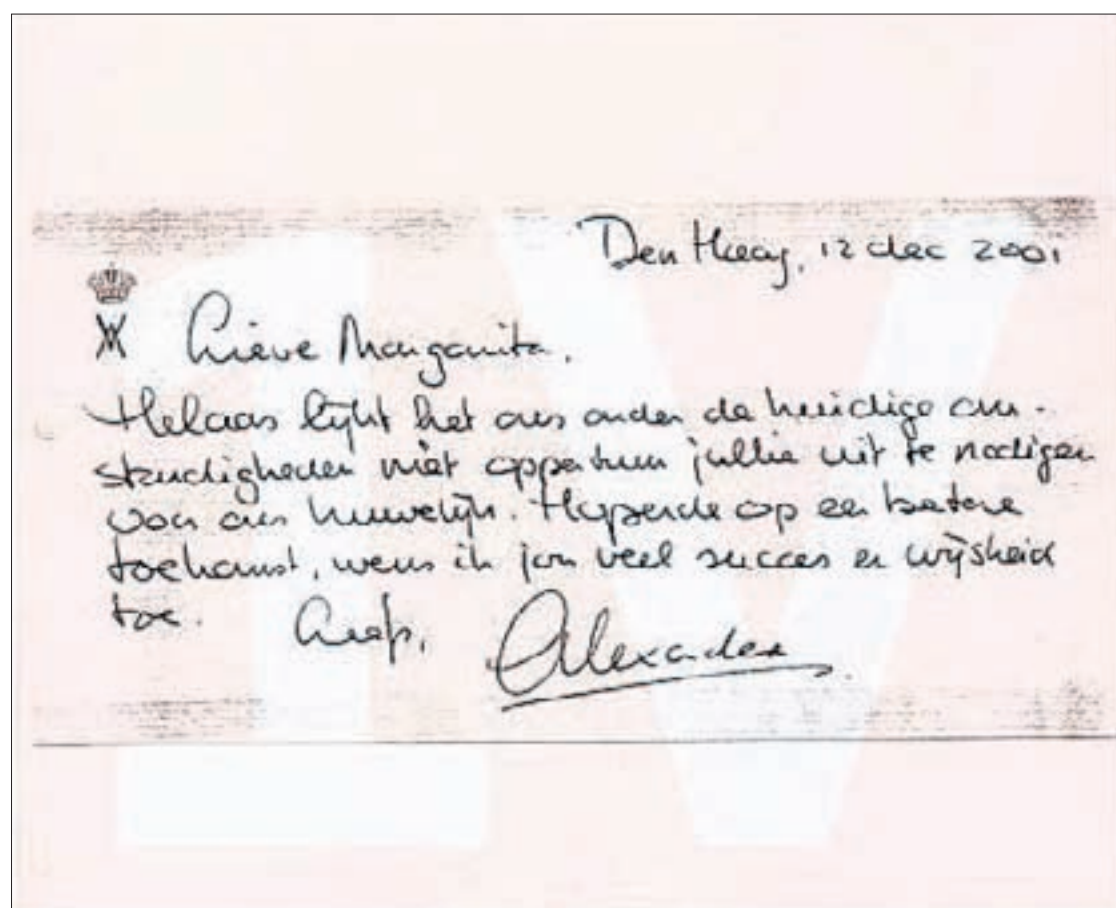 Den Haag, 12 dec 2001
Lieve Margarita,
Helaas lijkt het ons onder de huidige om-
standigheden niet opportuun jullie uit te nodigen
voor ons huwelijk. Hopende op een betere
toekomst, wens ik jou veel succes en wijsheid
toe. Liefs, Alexander